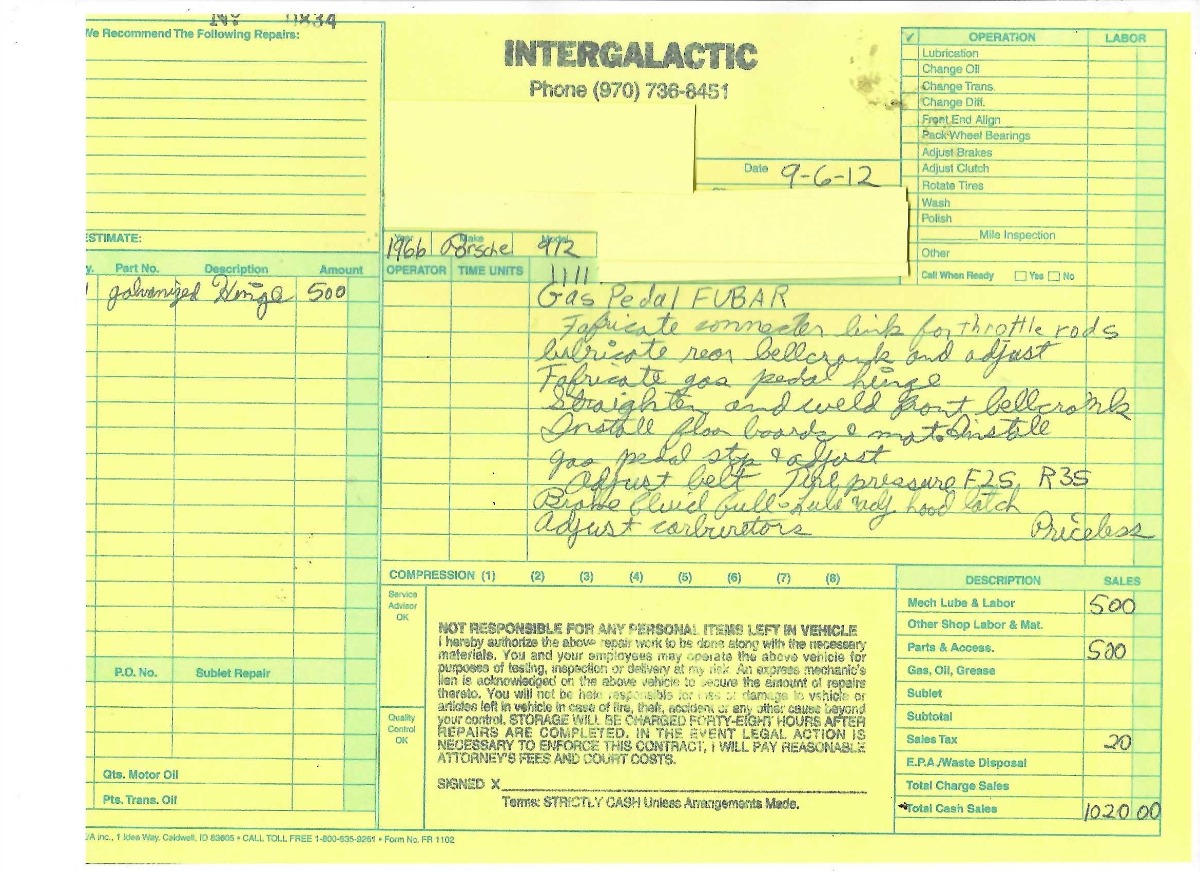 NY 11834
We Recommend The Following Repairs:
INTERGALACTIC
Phone (970) 736-8451
Date 9-6-12
✓ OPERATION LABOR
Lubrication
Change Oil
Change Trans.
Change Diff.
Front End Align
Pack Wheel Bearings
Adjust Brakes
Adjust Clutch
Rotate Tires
Wash
Polish
Mile Inspection
Other
Call When Ready Yes No
ESTIMATE:
Year Make Model
1966 Porsche 912
Part No. Description Amount
1 galvanized Hinge 500
OPERATOR TIME UNITS
Gas Pedal FUBAR
Fabricate connecter link for throttle rods
lubricate rear bellcrank and adjust
Fabricate gas pedal hinge
Straighten and weld front bellcrank
Install floor boards & mat. Install
gas pedal stop & adjust
Adjust belt Tire pressure F25 R35
Brake fluid full - Lube adj. hood latch
Adjust carburetors Priceless
COMPRESSION (1) (2) (3) (4) (5) (6) (7) (8)
Service
Advisor
OK
NOT RESPONSIBLE FOR ANY PERSONAL ITEMS LEFT IN VEHICLE
I hereby authorize the above repair work to be done along with the necessary
materials. You and your employees may operate the above vehicle for
purposes of testing, inspection or delivery at my risk. An express mechanic's
lien is acknowledged on the above vehicle to secure the amount of repairs
thereto. You will not be held responsible for loss or damage to vehicle or
articles left in vehicle in case of fire, theft, accident or any other cause beyond
your control. STORAGE WILL BE CHARGED FORTY-EIGHT HOURS AFTER
REPAIRS ARE COMPLETED. IN THE EVENT LEGAL ACTION IS
NECESSARY TO ENFORCE THIS CONTRACT, I WILL PAY REASONABLE
ATTORNEY'S FEES AND COURT COSTS.
SIGNED X
Terms: STRICTLY CASH Unless Arrangements Made.
Quality
Control
OK
P.O. No. Sublet Repair
Qts. Motor Oil
Pts. Trans. Oil
DESCRIPTION SALES
Mech Lube & Labor 500
Other Shop Labor & Mat.
Parts & Access. 500
Gas, Oil, Grease
Sublet
Subtotal
Sales Tax 20
E.P.A./Waste Disposal
Total Charge Sales
Total Cash Sales 1020 00
inc., 1 Idea Way, Caldwell, ID 83605 • CALL TOLL FREE 1-800-635-9261 • Form No. FR 1102